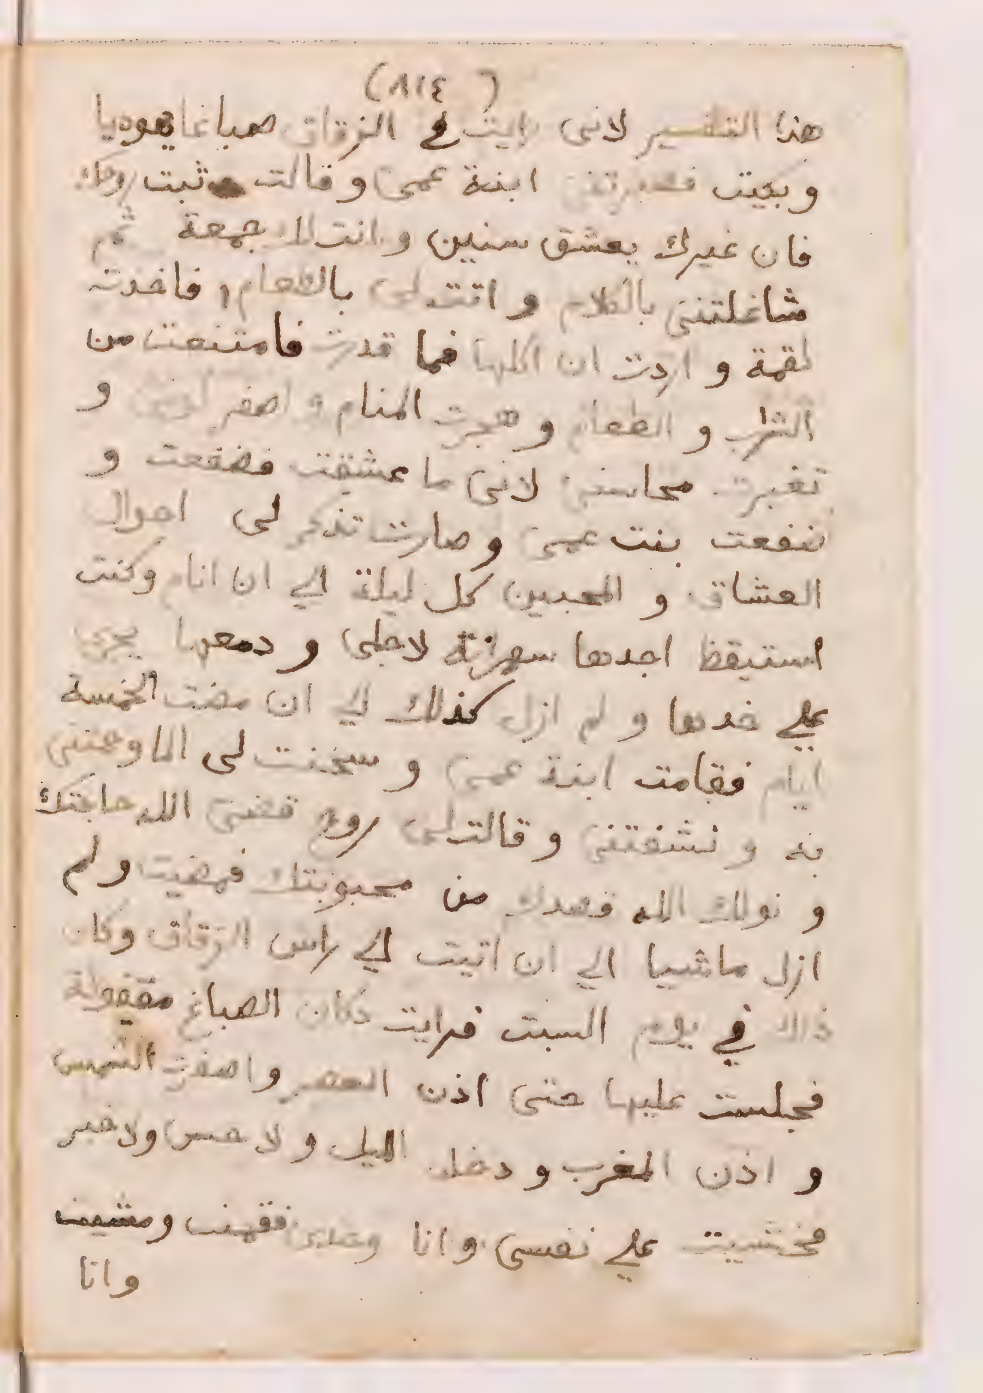 (٨١٤)
هذا التفسير لانى رايت في الزقاق صباغا يهوديا
و بكيت فصبرتنى ابنة عمى و قالت ثبت روحك
فان غيرك يعشق سنين و انت لك جمعة ثم
شاغلتنى بالكلام و اتت لى بالطعام فاخدت
لقمة و اردت ان اكلها فما قدرت فامتنعت من
الشراب و الطعام و هجرت المنام و اصفر لونى و
تغيرت محاسنى لانى ما عشقت فضفعت و
ضفعت بنت عمى و صارت تذكر لى احوال
العشاق و المحبين كل ليلة الي ان انام و كنت
استيقظ اجدها سهرانة لاجلى و دمعها يجرى
علي خدها و لم ازل كذلك الي ان مضت الخمسة
ايام فقامت ابنة عمى و سخنت لى الما و حمتنى
به و نشفتنى و قالت لى روح قضى الله حاجتك
و نولك الله قصدك من محبوبتك فمضيت و لم
ازل ماشيا الي ان اتيت الي راس الزقاق و كان
ذلك في يوم السبت فرايت دكان الصباغ مقفولة
فجلست عليها حتى اذن العصر و اصفرت الشمس
و اذن المغرب و دخل اليل و لا حس و لا خبر
فخشيت علي نفسى و انا وحدى فقمت و مشيت
و انا